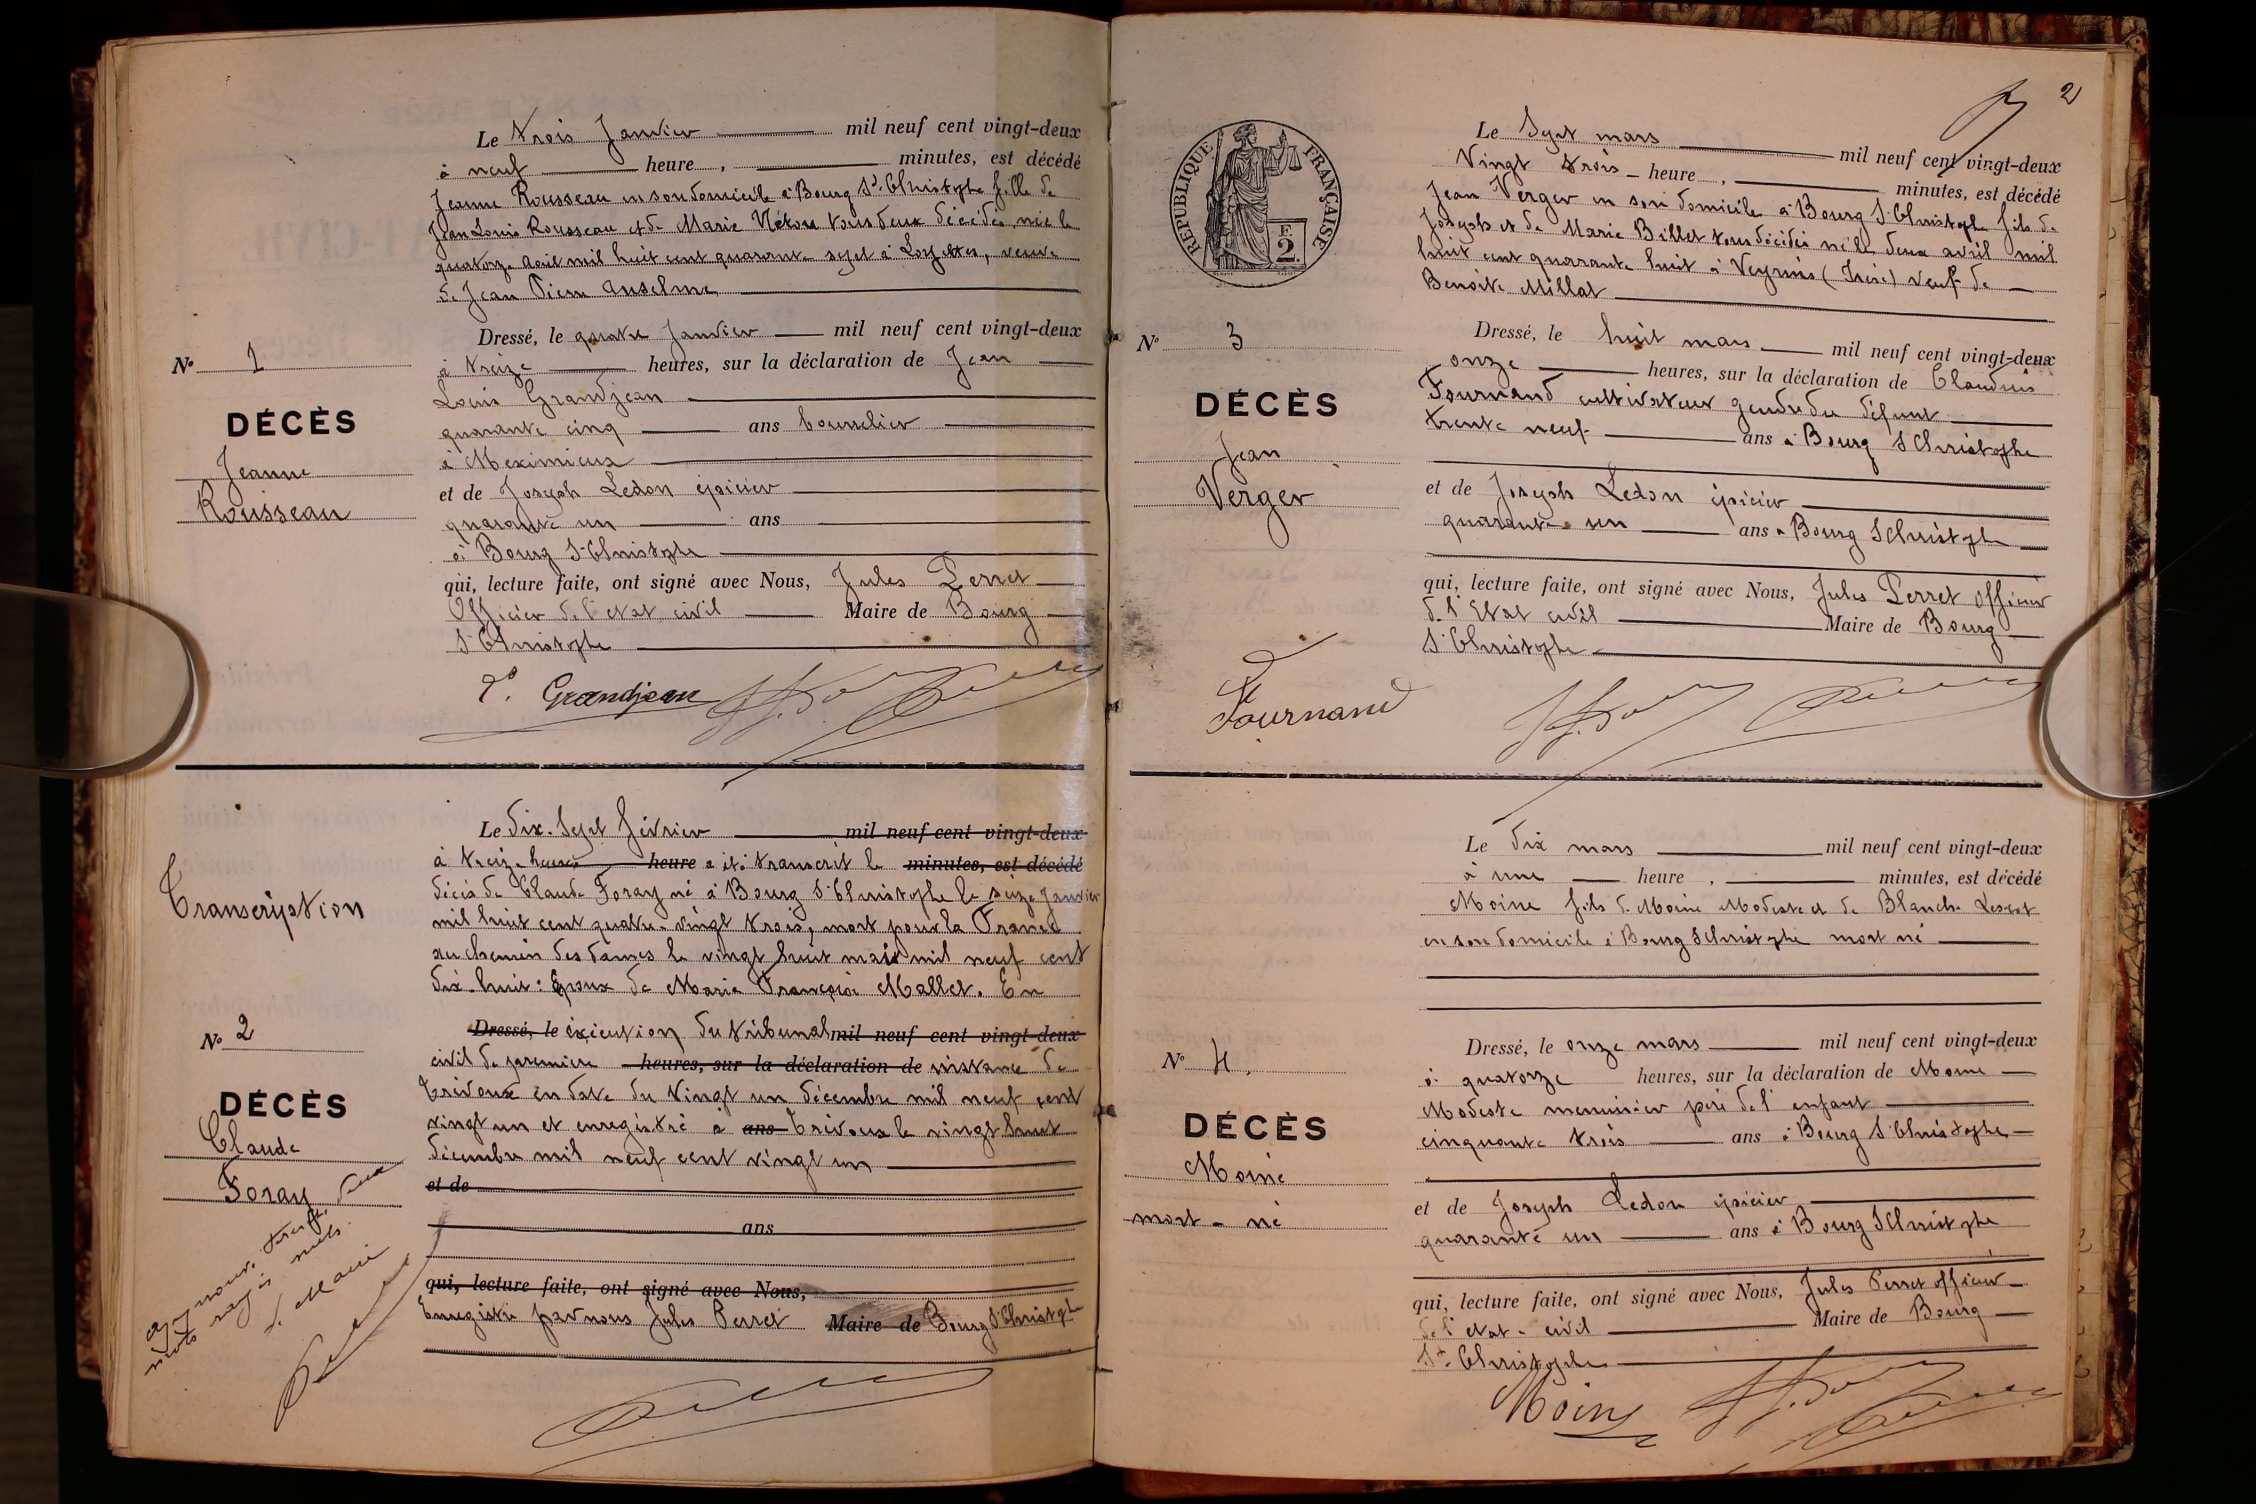 Le trois Janvier mil neuf cent vingt-deux
à neuf heure, minutes, est décédé
Jeanne Rousseau en son domicile à Bourg St Christophe fille de
Jean Louis Rousseau et de Marie tous deux décédés, née le
quatorze Août mil huit cent quarante sept à Loyettes, veuve
de Jean Pierre Anselme
Dressé, le quatre Janvier mil neuf cent vingt-deux
à treize heures, sur la déclaration de Jean
Louis Grandjean
quarante cinq ans bourrelier
à Meximieux
et de Joseph Ledon épicier
quarante un ans
à Bourg St Christophe
qui, lecture faite, ont signé avec Nous, Jules Perret
Officier de l'etat civil Maire de Bourg
St Christophe
Grandjean
No 1
DÉCÈS
Jeanne
Rousseau
Le dix-sept février mil neuf cent vingt-deux
à treize heures heure a été transcrit le minutes, est décédé
décès de Claude Foray né à Bourg St Christophe le seize janvier
mil huit cent quatre-vingt trois, mort pour la France
au chemin des dames le vingt huit mai mil neuf cent
dix-huit: Epoux de Marie Françoise Mallet. En
Dressé, le éxécution du tribunal mil neuf cent vingt-deux
civil de premiere heures, sur la déclaration de instance de
Trévoux en date du vingt un décembre mil neuf cent
vingt un et enregistré à ans Trévoux le vingt huit
décembre mil neuf cent vingt un
et de
ans
qui, lecture faite, ont signé avec Nous,
Enregistré par nous Jules Perret Maire de Bourg St Christophe
Transcription
No 2
DÉCÈS
Claude
Foray
mots rayés nuls
le Maire
2
RÉPUBLIQUE FRANÇAISE
F.
2.
Le Sept mars mil neuf cent vingt-deux
Vingt trois heure, minutes, est décédé
Jean Verger en son domicile à Bourg St Christophe fils de
Joseph et de Marie Billet tous décédés né le deux avril mil
huit cent quarante huit à Veyrins (Isère) veuf de
Benoite Millat
Dressé, le huit mars mil neuf cent vingt-deux
onze heures, sur la déclaration de Claudius
Fournand cultivateur gendre du défunt
trente neuf ans à Bourg St Christophe
et de Joseph Ledon épicier
quarante un ans à Bourg St Christophe
qui, lecture faite, ont signé avec Nous, Jules Perret officier
de l'Etat civil Maire de Bourg
St Christophe
Fournand
No 3
DÉCÈS
Jean
Verger
Le dix mars mil neuf cent vingt-deux
à une heure, minutes, est décédé
Moine fils de Moine Modeste et de Blanche
en son domicile à Bourg St Christophe mort né
Dressé, le onze mars mil neuf cent vingt-deux
à quatorze heures, sur la déclaration de Moine
Modeste menuisier père de l'enfant
cinquante trois ans à Bourg St Christophe
et de Joseph Ledon épicier
quarante un ans à Bourg St Christophe
qui, lecture faite, ont signé avec Nous, Jules Perret officier
de l'etat-civil Maire de Bourg
St Christophe
Moine
No 4.
DÉCÈS
Moine
mort-né